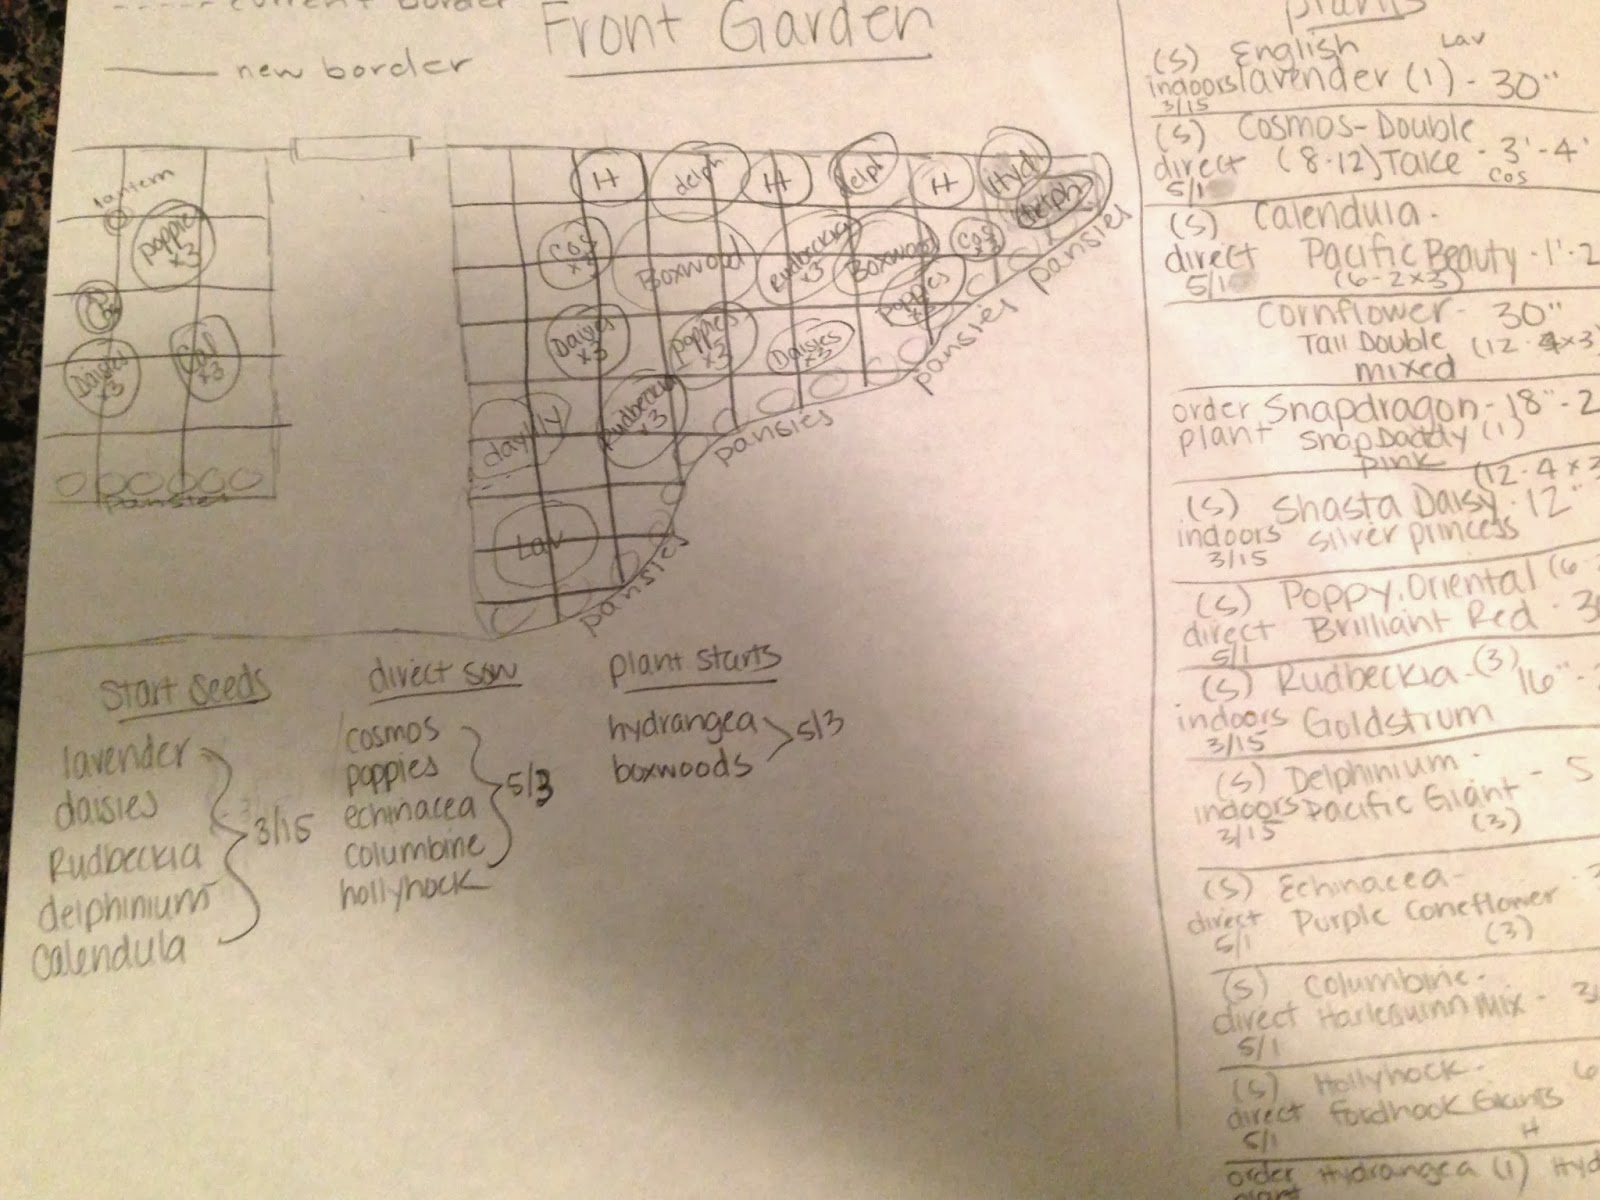 current border
new border
Front Garden
lantern
Poppies
x3
Daisies
x3
Cal
x3
Pansies
H
delph
H
delph
H
Hyd
delph
Cos
x3
Boxwood
Rudbeckia
x3
Boxwood
Cos
x3
Poppies
x3
Daisies
x3
Poppies
x3
Daisies
x3
pansies
pansies
pansies
daylily
Rudbeckia
x3
Lav
pansies
Start Seeds
lavender
daisies
Rudbeckia
delphinium
Calendula
3/15
direct sow
cosmos
poppies
echinacea
columbine
hollyhock
5/3
plant starts
hydrangea
boxwoods
5/3
plants
(S) English Lav
indoors lavender (1) - 30"
3/15
(S) Cosmos-Double
direct (8-12) Take - 3'-4'
5/1 Cos
(S) Calendula -
direct Pacific Beauty - 1'-2
5/1 (6-2x3)
Cornflower - 30"
Tall Double (12-4x3
mixed
order Snapdragon - 18"-2
plant Snap Daddy (1)
pink (12-4x3
(S) Shasta Daisy - 12"
indoors Silver princess
3/15
(S) Poppy, Oriental (6
direct Brilliant Red - 3
5/1
(S) Rudbeckia - (3) 16" -
indoors Goldstrum
3/15
(S) Delphinium - - 5
indoors Pacific Giant
3/15 (3)
(S) Echinacea -
direct Purple Coneflower
5/1 (3)
(S) Columbine -
direct Harlequinn Mix - 3
5/1
(S) Hollyhock - 6
direct Fordhook Giants
5/1 H
order Hydrangea (1) Hyd
plant